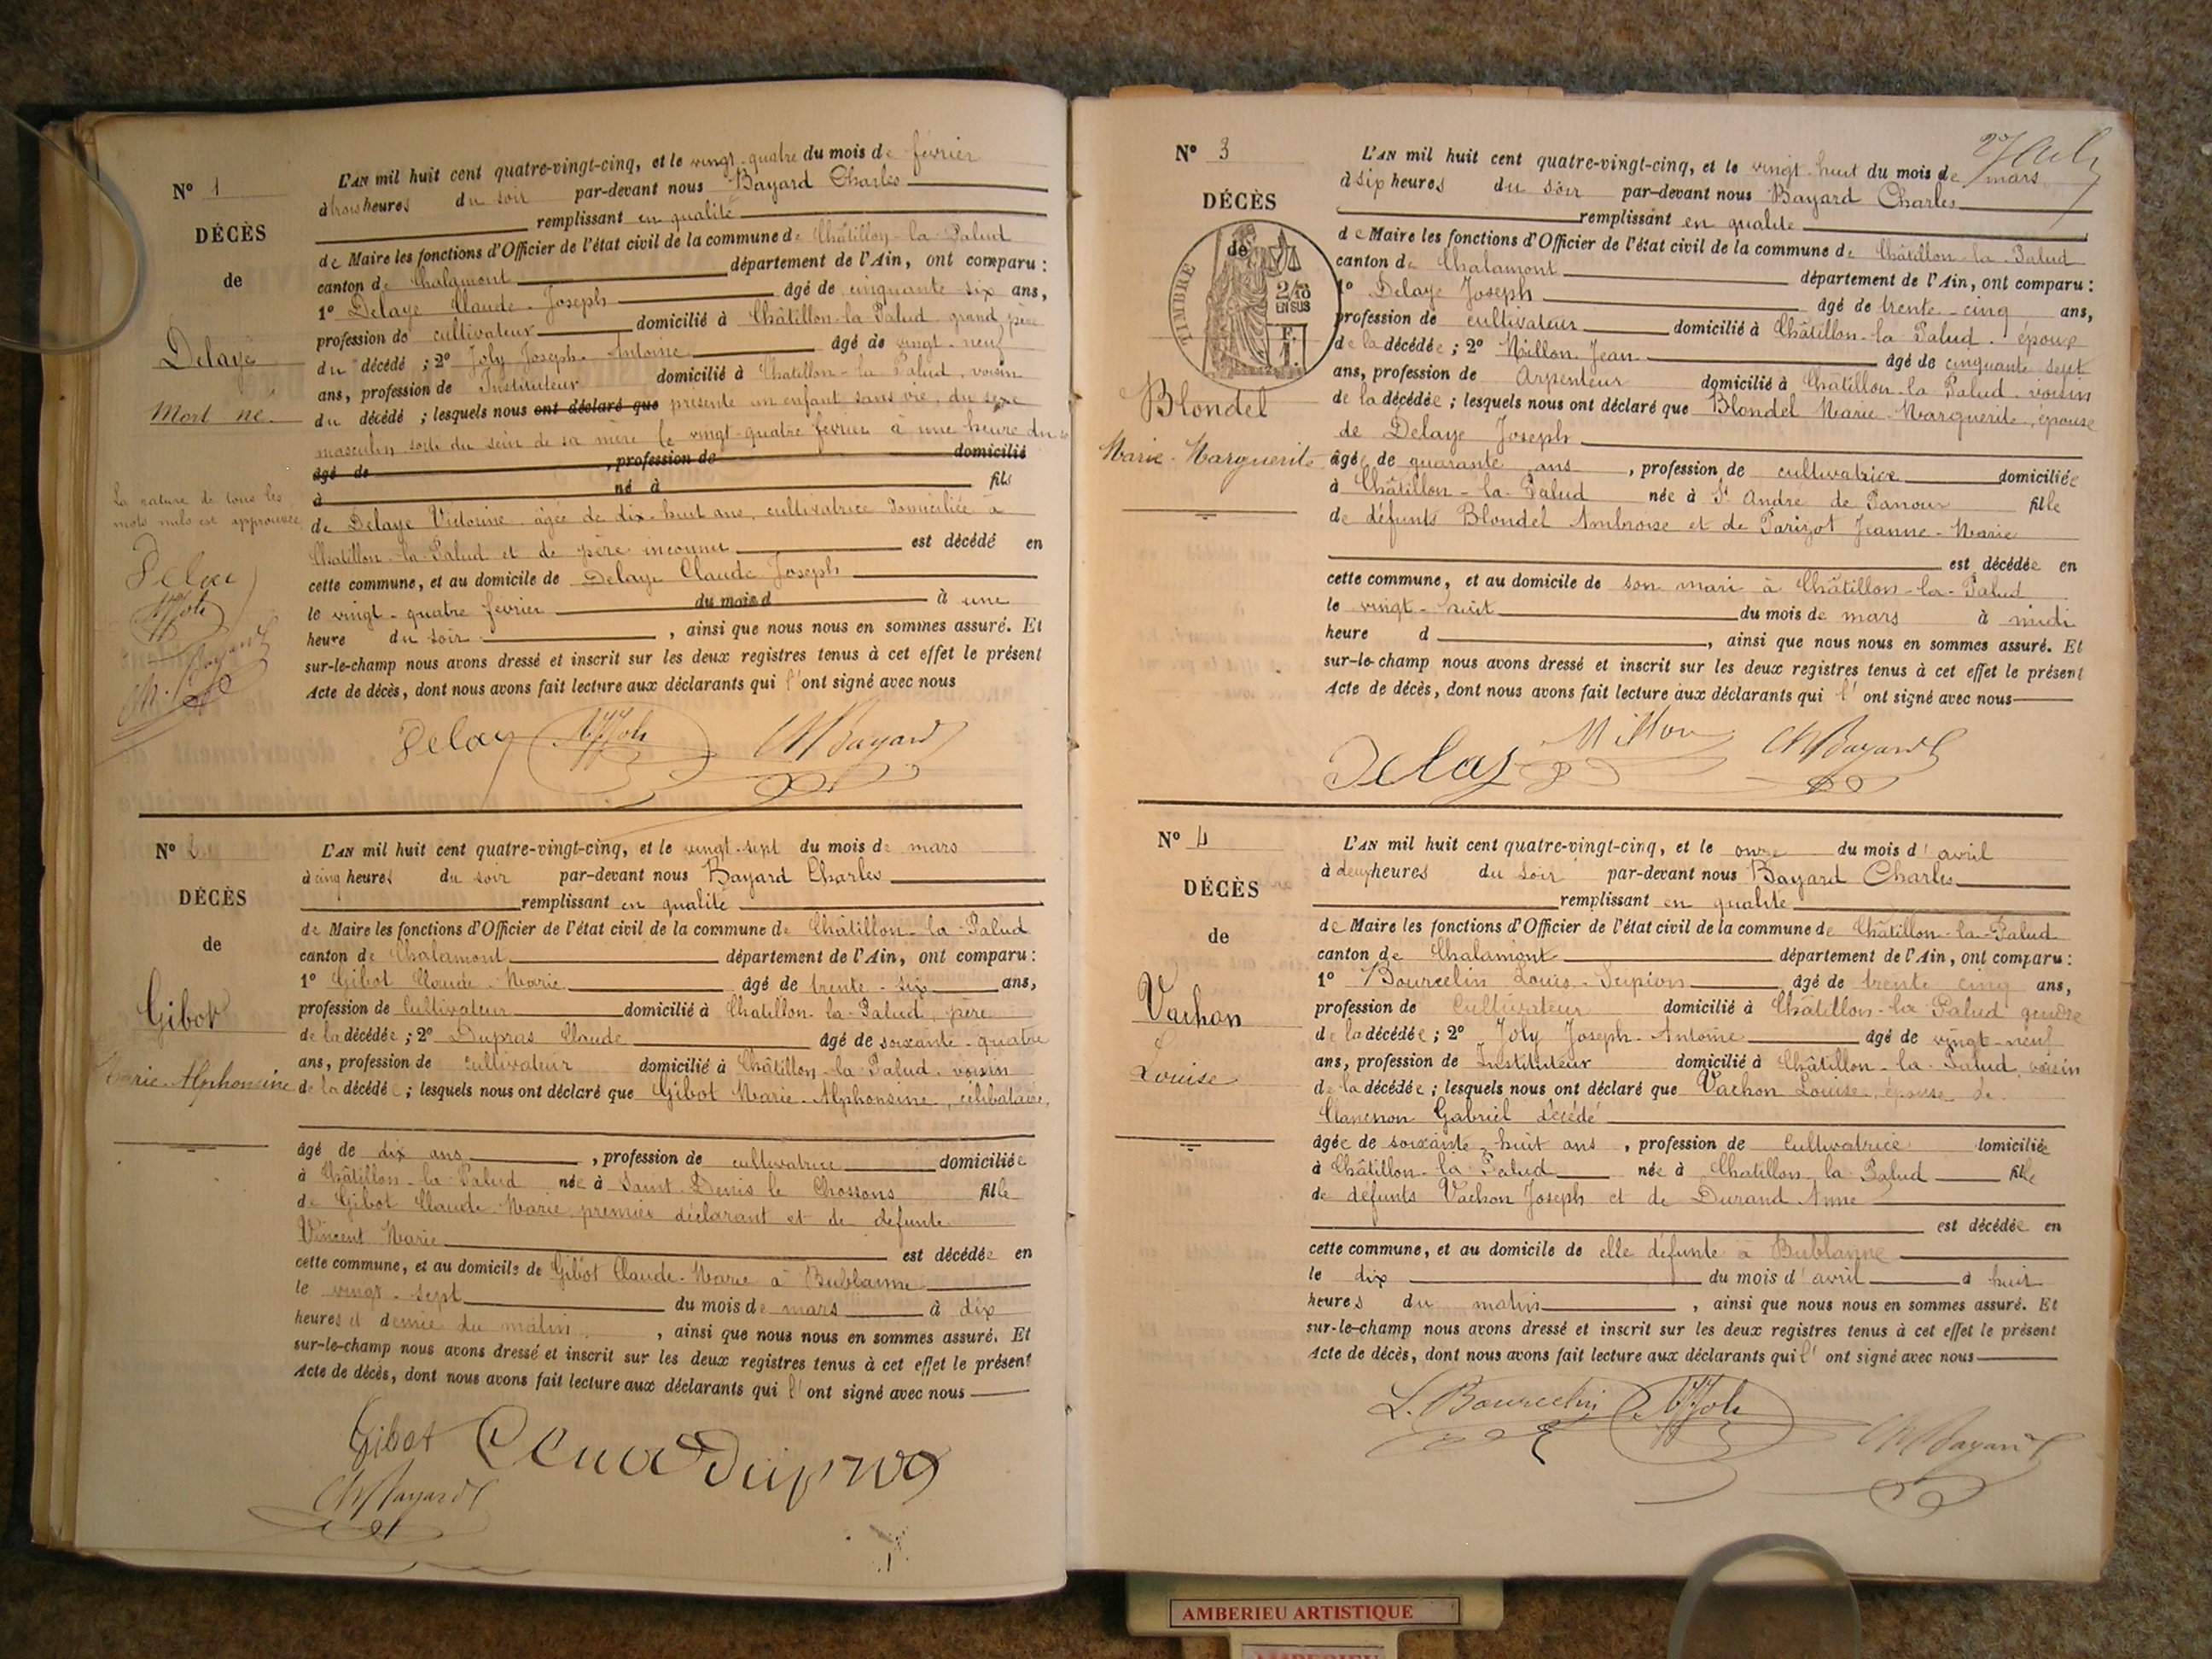 N° 1
DÉCÈS
de
Delaye
Mort né.
La rature de tous les
mots nuls est approuvée
L'AN mil huit cent quatre-vingt-cinq, et le vingt-quatre du mois de février
à trois heures du soir par-devant nous Bayard Charles
remplissant en qualité
de Maire les fonctions d'Officier de l'état civil de la commune de Châtillon-la-Palud
canton de Chalamont département de l'Ain, ont comparu :
1° Delaye Claude-Joseph âgé de cinquante six ans,
profession de cultivateur domicilié à Châtillon-la-Palud grand père
du décédé ; 2° Joly Joseph-Antoine âgé de vingt-neuf
ans, profession de Instituteur domicilié à Châtillon-la-Palud, voisin
du décédé ; lesquels nous ont déclaré que présenté un enfant sans vie, du sexe
masculin sorti du sein de sa mère le vingt-quatre février à une heure du
âgé de , profession de domicilié
à né à fils
de Delaye Victorine âgée de dix-huit ans, cultivatrice domiciliée à
Châtillon-la-Palud et de père inconnu est décédé en
cette commune, et au domicile de Delaye Claude Joseph
le vingt-quatre février du mois d à une
heure du soir , ainsi que nous nous en sommes assuré. Et
sur-le-champ nous avons dressé et inscrit sur les deux registres tenus à cet effet le présent
Acte de décès, dont nous avons fait lecture aux déclarants qui l'ont signé avec nous
Delay Joly Ch Bayard
N° 2
DÉCÈS
de
Gibot
Marie-Alphonsine
L'AN mil huit cent quatre-vingt-cinq, et le vingt-sept du mois de mars
à cinq heures du soir par-devant nous Bayard Charles
remplissant en qualité
de Maire les fonctions d'Officier de l'état civil de la commune de Châtillon-la-Palud
canton de Chalamont département de l'Ain, ont comparu :
1° Gibot Claude-Marie âgé de trente-six ans,
profession de Cultivateur domicilié à Chatillon-la-Palud, père
de la décédée ; 2° Dupras Claude âgé de soixante-quatre
ans, profession de cultivateur domicilié à Châtillon-la-Palud voisin
de la décédée ; lesquels nous ont déclaré que Gibot Marie-Alphonsine, célibataire,
âgé de dix ans , profession de cultivatrice domiciliée
à Châtillon-la-Palud née à Saint-Denis le Chossons fille
de Gibot Claude-Marie premier déclarant et de défunte
Vincent Marie est décédée en
cette commune, et au domicile de Gibot Claude-Marie à Bublanne
le vingt-sept du mois de mars à dix
heures et demie du matin , ainsi que nous nous en sommes assuré. Et
sur-le-champ nous avons dressé et inscrit sur les deux registres tenus à cet effet le présent
Acte de décès, dont nous avons fait lecture aux déclarants qui l'ont signé avec nous
Gibot
Ch Bayard
N° 3
DÉCÈS
de
TIMBRE
2/10
EN SUS
Blondel
Marie-Marguerite
L'AN mil huit cent quatre-vingt-cinq, et le vingt huit du mois de mars
à six heures du soir par-devant nous Bayard Charles
remplissant en qualité
de Maire les fonctions d'Officier de l'état civil de la commune de Châtillon-la-Palud
canton de Chalamont département de l'Ain, ont comparu :
1° Delaye Joseph âgé de trente-cinq ans,
profession de cultivateur domicilié à Châtillon-la-Palud. époux
de la décédée ; 2° Millon Jean âgé de cinquante sept
ans, profession de Arpenteur domicilié à Châtillon-la-Palud voisin
de la décédée ; lesquels nous ont déclaré que Blondel Marie-Marguerite, épouse
de Delaye Joseph
âgée de quarante ans , profession de cultivatrice domiciliée
à Châtillon-la-Palud née à St André de Panoux fille
de défunts Blondel Ambroise et de Parizot Jeanne-Marie
est décédée en
cette commune, et au domicile de son mari à Châtillon-la-Palud
le vingt-huit du mois de mars à midi
heure d , ainsi que nous nous en sommes assuré. Et
sur-le-champ nous avons dressé et inscrit sur les deux registres tenus à cet effet le présent
Acte de décès, dont nous avons fait lecture aux déclarants qui l'ont signé avec nous
Delay Millon Ch Bayard
N° 4
DÉCÈS
de
Vachon
Louise
L'AN mil huit cent quatre-vingt-cinq, et le onze du mois d'avril
à deux heures du soir par-devant nous Bayard Charles
remplissant en qualité
de Maire les fonctions d'Officier de l'état civil de la commune de Châtillon-la-Palud
canton de Chalamont département de l'Ain, ont comparu :
1° Bourcelin Louis-Scipion âgé de trente cinq ans,
profession de Cultivateur domicilié à Châtillon-la-Palud gendre
de la décédée ; 2° Joly Joseph-Antoine âgé de vingt-neuf
ans, profession de Instituteur domicilié à Châtillon-la-Palud, voisin
de la décédée ; lesquels nous ont déclaré que Vachon Louise, épouse de
Gabriel décédé
âgée de soixante-huit ans , profession de Cultivatrice domiciliée
à Châtillon-la-Palud née à Chatillon la Palud fille
de défunts Vachon Joseph et de Durand Anne
est décédée en
cette commune, et au domicile de elle défunte à Bublanne
le dix du mois d'avril à huit
heures du matin , ainsi que nous nous en sommes assuré. Et
sur-le-champ nous avons dressé et inscrit sur les deux registres tenus à cet effet le présent
Acte de décès, dont nous avons fait lecture aux déclarants qui l'ont signé avec nous
L. Bourcelin Joly Ch Bayard
AMBERIEU ARTISTIQUE
AMBERIEU